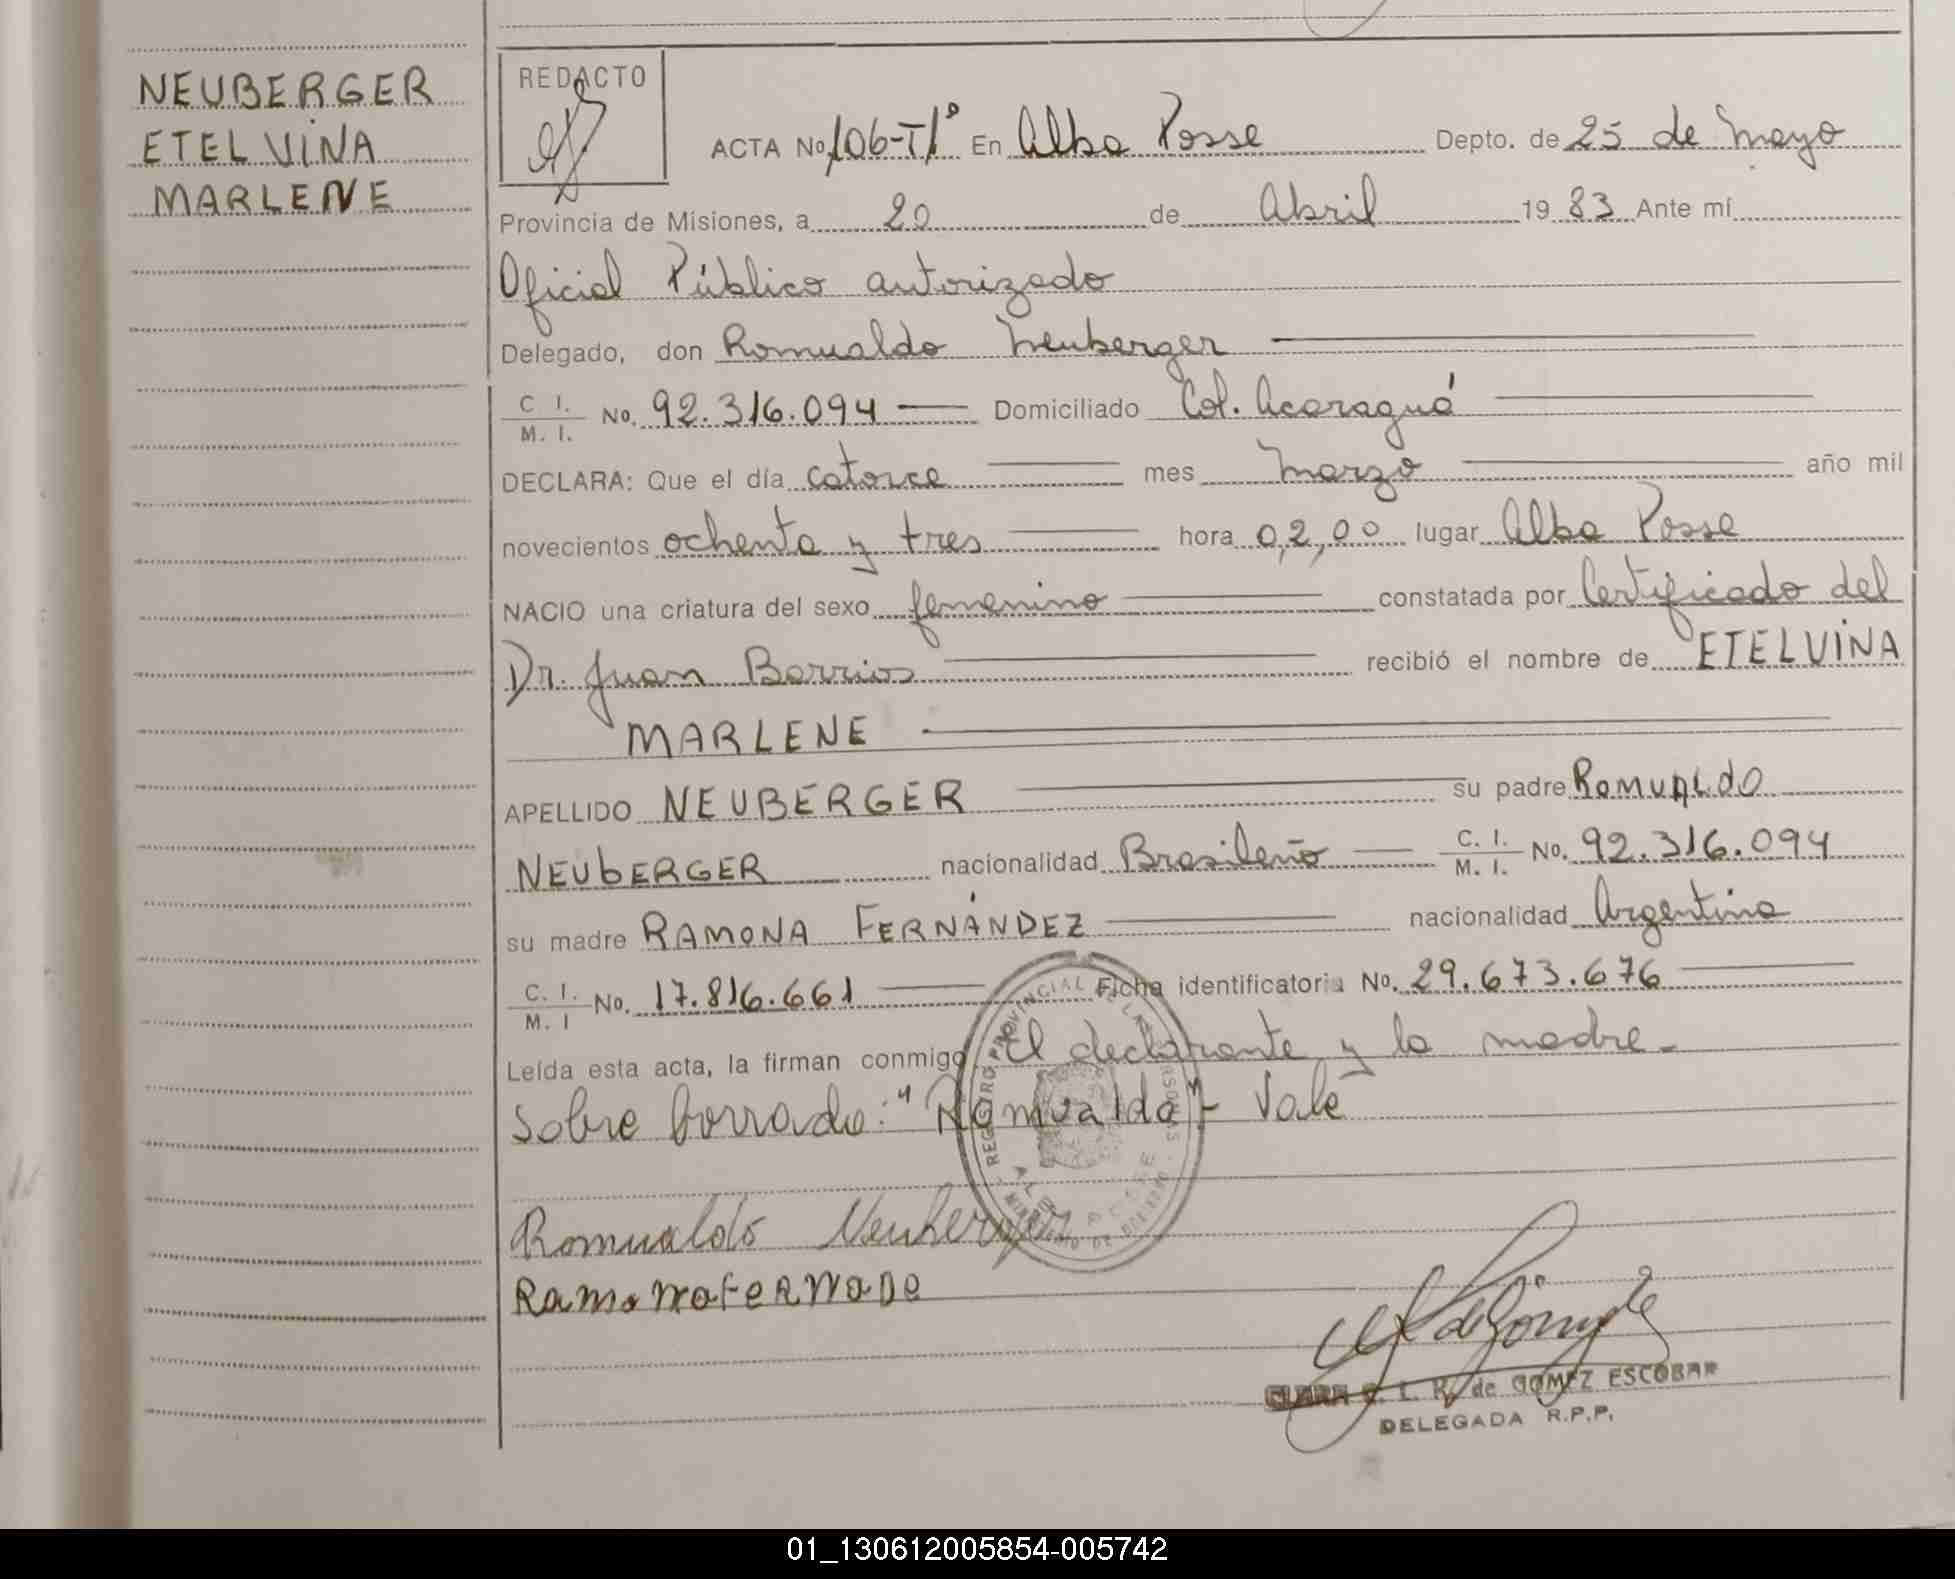 NEUBERGER
ETELVINA
MARLENE
REDACTO
ACTA No. 106-T1° En Alba Posse Depto. de 25 de Mayo
Provincia de Misiones, a 20 de Abril 1983 Ante mí
Oficial Público autorizado
Delegado, don Romualdo Neuberger
C. I. / M. I. No. 92.316.094 Domiciliado Col. Acaraguá
DECLARA: Que el día catorce mes Marzo año mil
novecientos ochenta y tres hora 0,2,00 lugar Alba Posse
NACIO una criatura del sexo femenino constatada por Certificado del
Dr. Juan Barrios recibió el nombre de ETELVINA
MARLENE
APELLIDO NEUBERGER su padre ROMUALDO
NEUBERGER nacionalidad Brasileño C. I. / M. I. No. 92.316.094
su madre RAMONA FERNÁNDEZ nacionalidad Argentina
C. I. / M. I No. 17.816.661 Ficha identificatoria No. 29.673.676
Leída esta acta, la firman conmigo El declarante y la madre.-
Sobre borrado: "Romualdo"- Vale
REGISTRO PROVINCIAL DE LAS PERSONAS
ALBA POSSE
MINISTERIO DE GOBIERNO
Romualdo Neuberger
Ramona Fernade
CLARA E. L. R. de GOMEZ ESCOBAR
DELEGADA R.P.P.
01_130612005854-005742